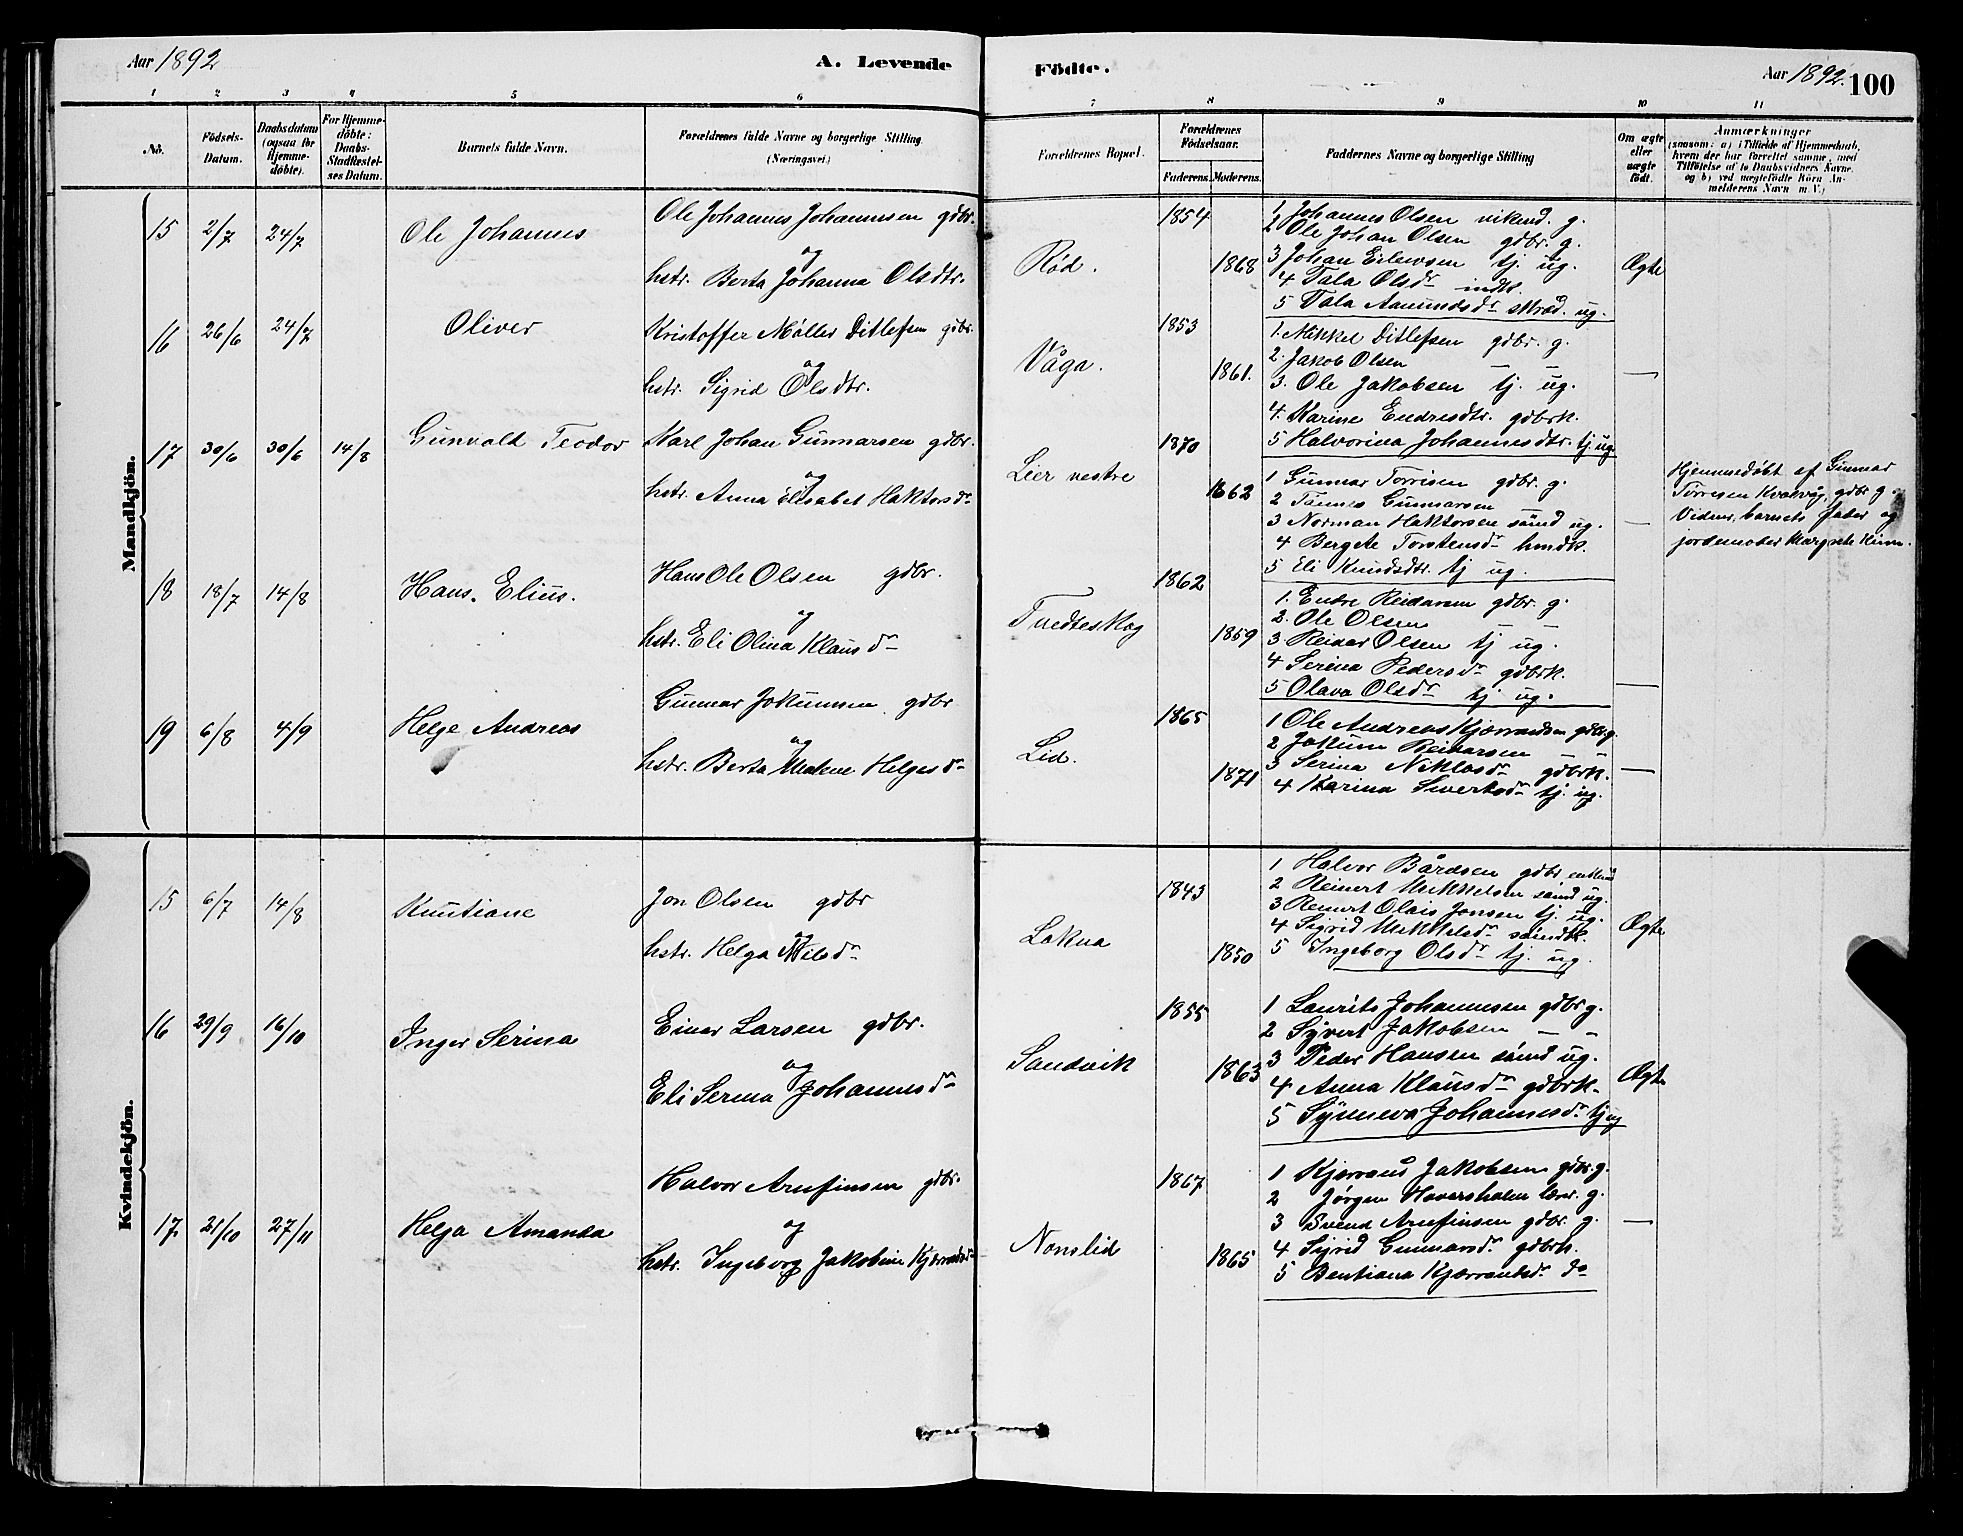 Aar 1892
A. Levende Födte.
Aar 1892. 100
1 2 3 4 5 6 7 8 9 10 11
No.
Födsels-Datum.
Daabsdatum (ogsaa for Hjemme-döbte).
For Hjemme-döbte: Daabs-Stadfæstel-ses Datum.
Barnets fulde Navn.
Forældrenes fulde Navne og borgerlige Stilling (Næringsvei.)
Forældrenes Bopæl.
Forældrenes Födselsaar.
Faderens. Moderens.
Faddernes Navne og borgerlige Stilling
Om ægte eller uægte födt.
Anmærkninger
(saasom: a) i Tilfælde af Hjemmedaab, hvem der har forrettet samme, med Tilföielse af to Daabsvidners Navne, og b) ved uægtefödte Börn An-melderens Navn m. V.)
Mandkjön.
15 2/7 24/7 Ole Johannes
Ole Johannes Johannesen gdbr.
og
hstr. Berta Johanna Olsdtr.
Rød. 1854 1868
1. Johannes Olsen g.
2 Ole Johan Olsen gdbr. g.
3 Johan Eilevsen tj. ug.
4 Tala Olsdr indk.
5 Tala Aamundsdr ug.
Ægte
16 26/6 24/7 Oliver
Kristoffer Møller Ditlefsen gdbr.
og
hstr. Sigrid Olsdtr.
Våga. 1853 1861.
1. Mikkel Ditlefsen gdbr. g.
2. Jakob Olsen — —
3. Ole Jakobsen tj. ug.
4. Karine Endresdtr. gdbrk.
5 Halvorina Johannesdtr. tj. ug.
—
17 30/6 30/6 14/8 Gunvald Teodor
Karl Johan Gunnarsen gdbr.
og
hstr. Anna Elisabet Haktorsdr
Lier vestre 1870 1862
1 Gunnar Torrisen gdbr. g.
2 Tønnes Gunnarsen
3 Norman Haktorsen sömd ug.
4 Bergete Torstensdr
5 Eli Knudsdtr. tj ug.
—
Hjemmedøbt af Gunnar
Torresen Kvalvåg, gdbr g.
Vidner, barnets fader og
jordemoder Margrete
18 18/7 14/8 Hans Elius.
Hans Ole Olsen gdbr.
og
hstr. Eli Olina Klausdr
Tvedteskog 1862 1859
1. Endre Reidarsen gdbr. g.
2. Ole Olsen — —
3. Reidar Olsen tj ug.
4 Serina Pedersdr gdbrk.
5 Olava Olsdr tj ug.
—
19 6/8 4/9 Helge Andreas
Gunnar Jokumsen gdbr
og
hstr. Berta Malene Helgesdr
Lid. 1865 1871
1 Ole Andreas Kjærrandsen gdbr g
2 Jokum Reidarsen — —
3 Serina Niklasdr gdbrk.
4 Karina Sivertsdr tj. ug.
—
Kvindekjön.
15 6/7 14/8 Knutiane
Jon Olsen gdbr
og
hstr. Helga Nilsdr
Lokna 1843 1850
1 Halvor Bårdsen gdbr
2 Reinert Mikkelsen sömd ug.
3 Reinert Olais Jonsen tj. ug.
4 Sigrid Mikkelsdr sömdk.
5 Ingeborg Olsdr tj. ug.
Ægte
16 29/9 16/10 Inger Serina
Einar Larsen gdbr.
og
Eli Serina Johannesdr
Sandvik 1855 1863
1 Laurits Johannesen gdbr g.
2 Syvert Jakobsen — —
3 Peder Hansen sömd ug.
4 Anna Klausdr gdbrk.
5 Synneva Johannesdr tj ug
Ægte
17. 21/10 27/11 Helga Amanda
Halvor Arnfinsen gdbr.
og
hstr. Ingeborg Jakobine Kjærrandsdr
Nonslid 1867 1865
1 Kjærrand Jakobsen gdbr. g.
2 Jørgen Hoversholm lærer. g.
3 Svend Arnfinsen gdbr. g.
4 Sigrid Gunnarsdr gdbrk.
5 Bentiana Kjærrandsdr do
—